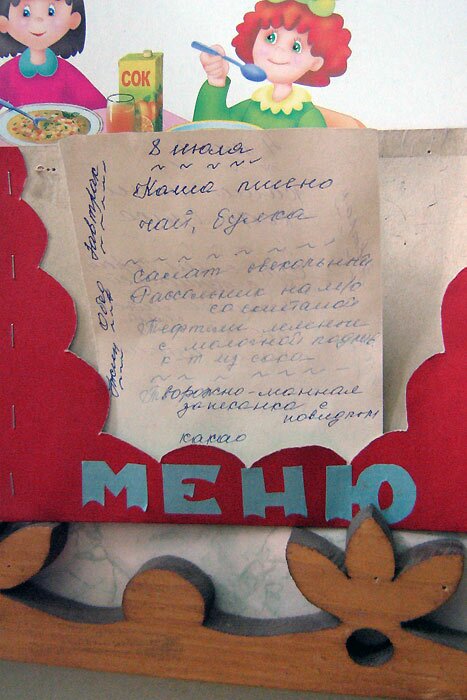 СОК
8 июля
Завтрак
Каша пшено
чай, булка
Обед
Салат свекольный
Рассольник на м/б
со сметаной
Тефтели
с молочной подлив
к-т из сока
Творожно-манная
запеканка с
повидлом
какао
МЕНЮ